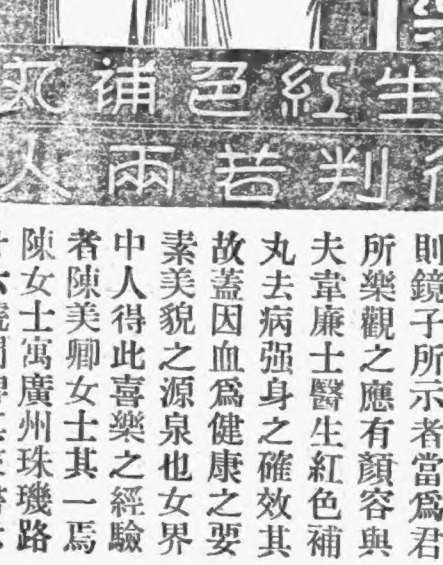 生紅色補丸
判若兩人
則鏡子所示者當爲君
所樂觀之應有顏容與
夫韋廉士醫生紅色補
丸去病强身之確效其
故蓋因血爲健康之要
素美貌之源泉也女界
中人得此喜樂之經驗
者陳美卿女士其一焉
陳女士寓廣州珠璣路